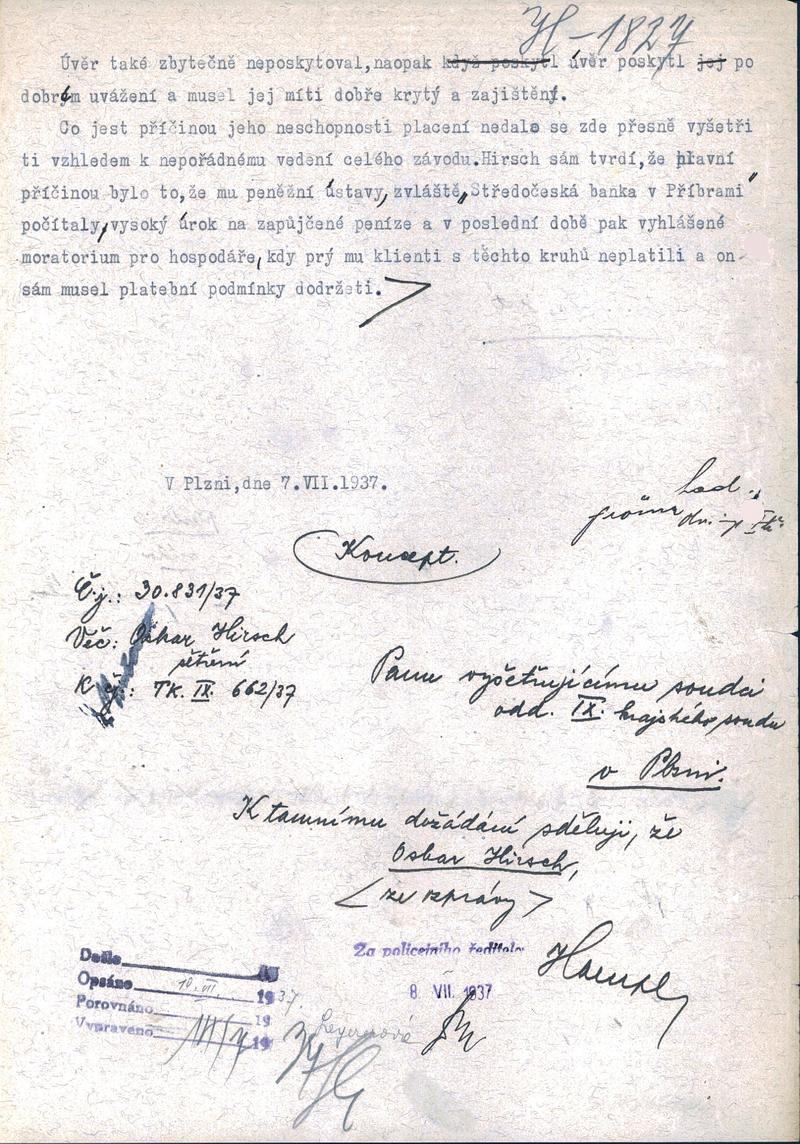 H-1827
Úvěr také zbytečně neposkytoval,naopak když poskytl úvěr poskytl jej po
dobrém uvážení a musel jej míti dobře krytý a zajištěný.
Co jest příčinou jeho neschopnosti placení nedalo se zde přesně vyšetři
ti vzhledem k nepořádnému vedení celého závodu.Hirsch sám tvrdí,že hlavní
příčinou bylo to,že mu peněžní ústavy, zvláště „Středočeská banka v Příbrami"
počítaly, vysoký úrok na zapůjčené peníze a v poslední době pak vyhlášené
moratorium pro hospodáře, kdy prý mu klienti s těchto kruhů neplatili a on
sám musel platební podmínky dodržeti.
V Plzni,dne 7.VII.1937.
Koncept.
Č.j.: 30.831/37
Věc: Oskar Hirsch
šetření
K čj.: TK. IX. 662/37
Panu vyšetřujícímu soudci
odd. IX. krajského soudu
v Plzni.
K tamnímu dožádání sděluji, že
Oskar Hirsch,
<ze zprávy>
Za policejního ředitele
8 VII. 1937
Došlo 19
Opsáno 10.VII. 1937.
Porovnáno 19
Vypraveno 19